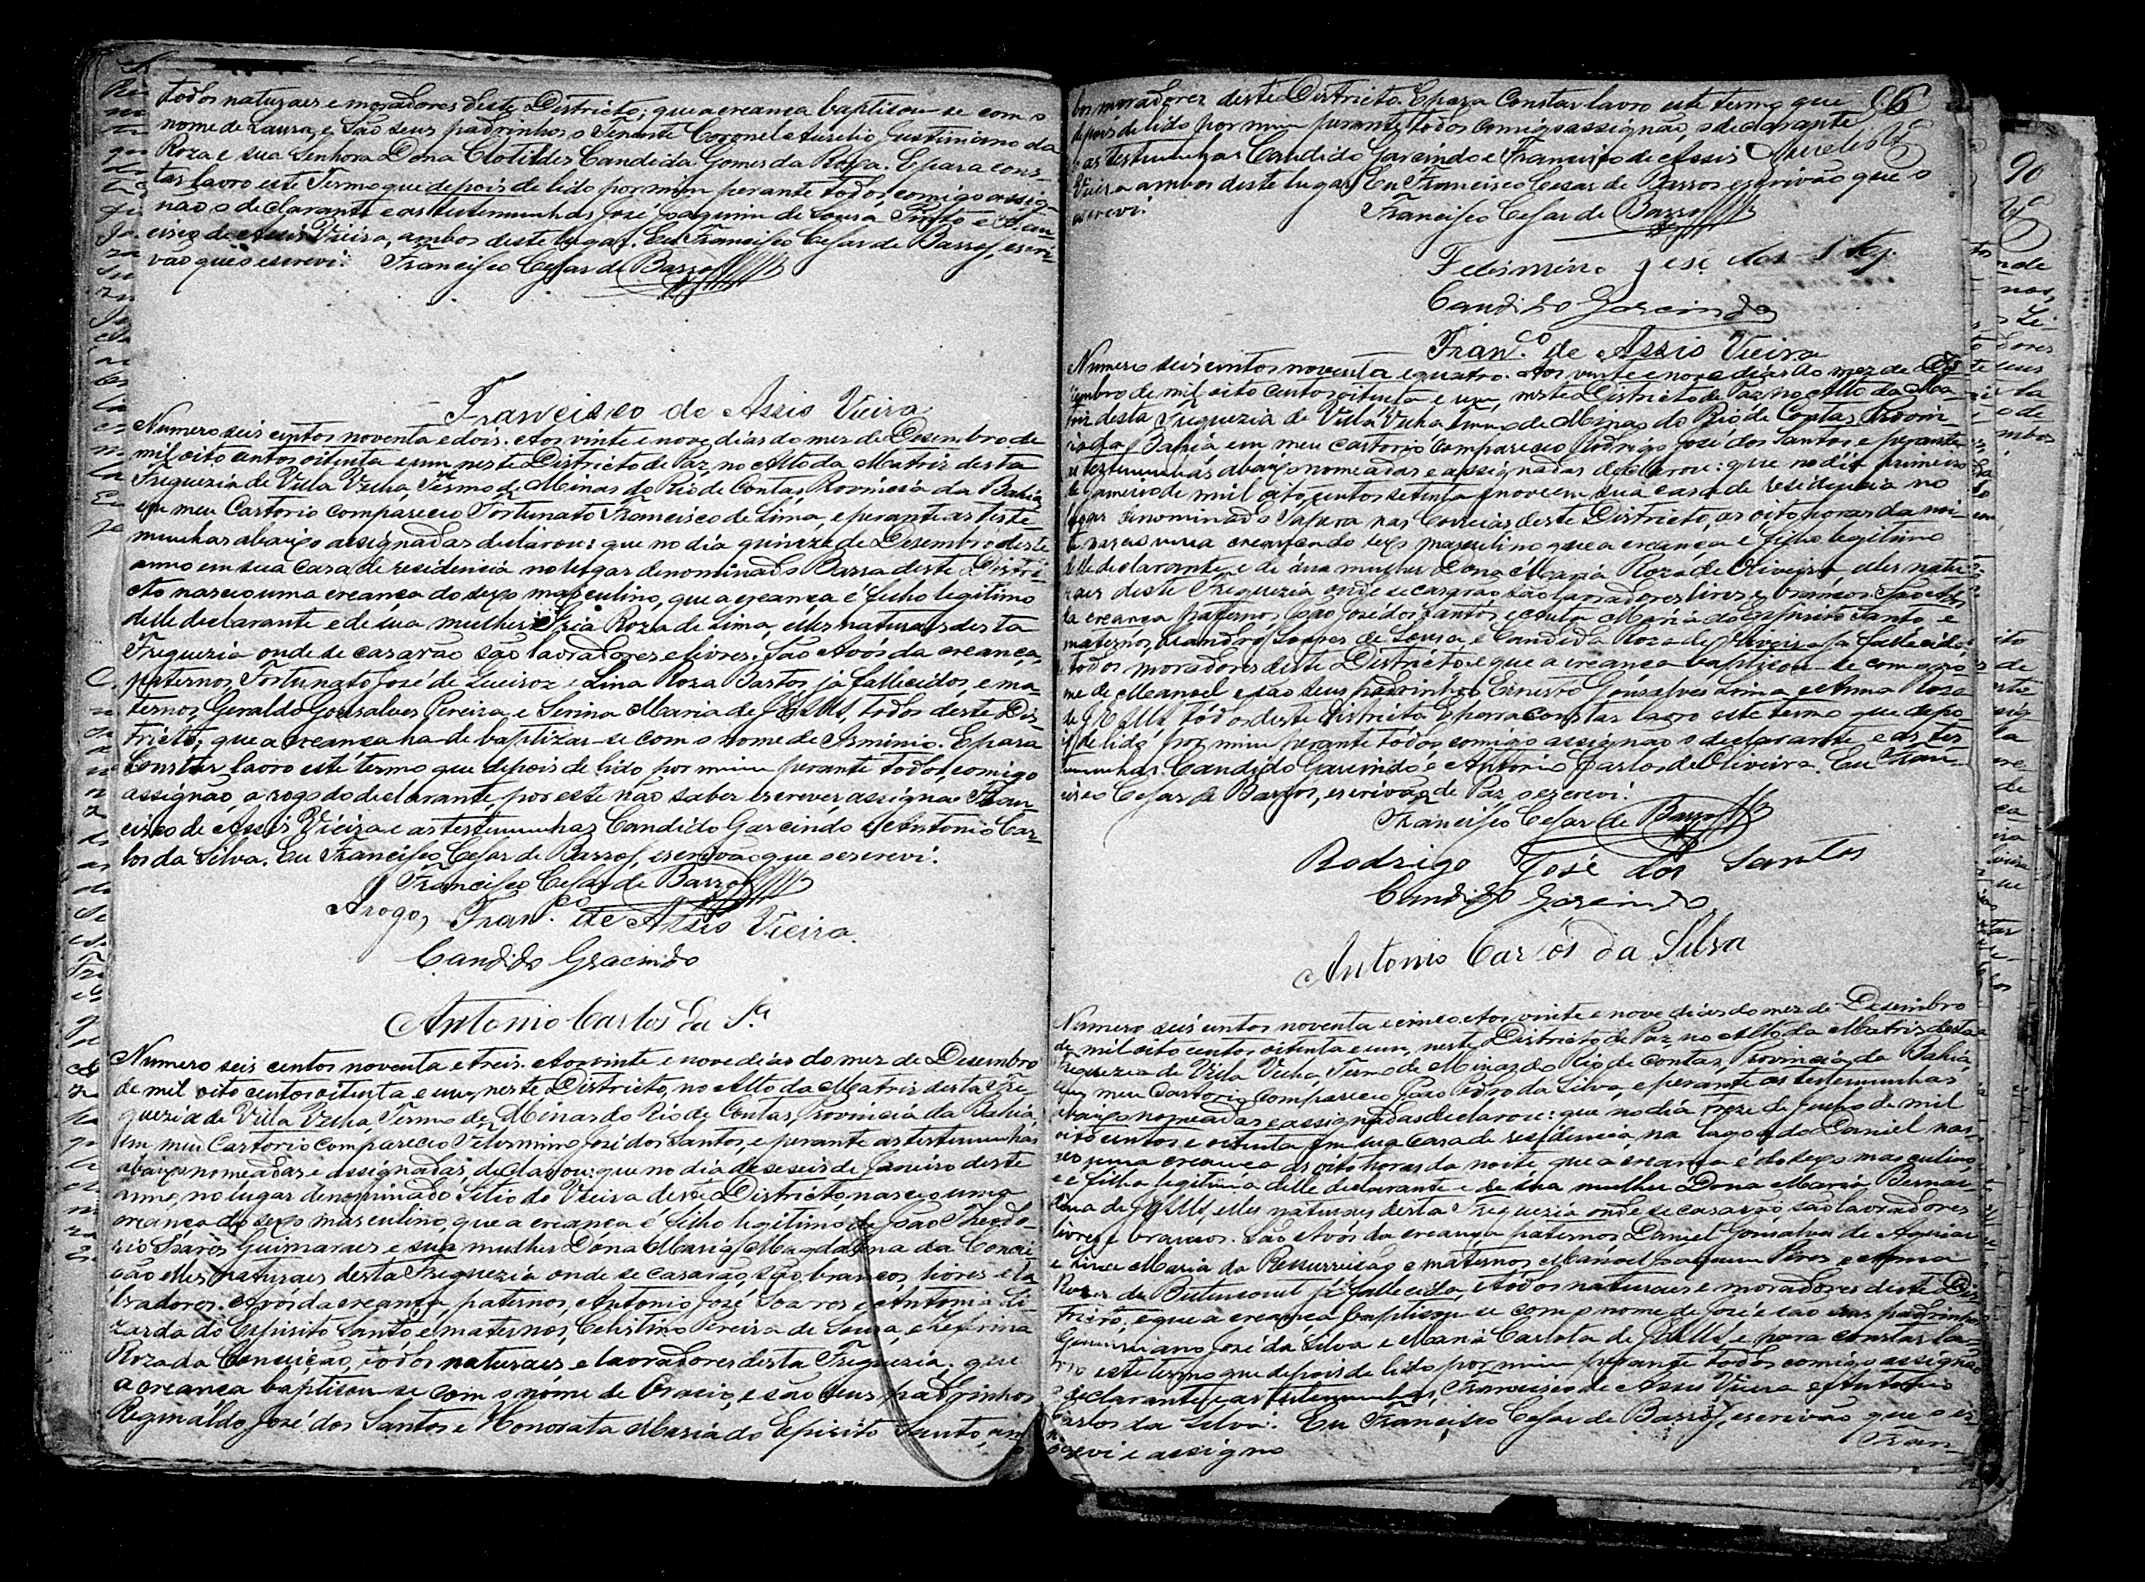 todos naturaes e moradores deste Districto; que a creança baptisou-se com o
nome de Laura, e são seus padrinhos o Tenente Coronel Aurelio Justiniano da
Roza e sua Senhora Dona Clotildes Candida Gomes da Roza. E para cons-
tar lavro este Termo que depois de lido por mim perante todos, comigo assig-
não, o declarante e as testemunhas José Joaquim de Sousa Pinto e Fran-
cisco de Assis Vieira, ambos deste lugar. Eu Francisco Cesar de Barros, escri-
vão que o escrevi. Francisco Cesar de Barros
Francisco de Assis Vieira
Numero seis centos noventa e dois. Aos vinte e nove dias do mez de Desembro de
mil oito centos oitenta e um neste Districto de Paz, no Alto da Matriz desta
Freguezia de Villa Velha, Termo de Minas do Rio de Contas, Provincia da Bahia,
em meu Cartorio compareceu Fortunato Francisco de Lima, e perante as teste-
munhas abaixo assignadas declarou: que no dia quinze de Desembro deste
anno em sua casa de residencia no lugar denominado Barra deste Distri-
cto nasceo uma creança do sexo masculino, que a creança é filho legitimo
delle declarante e de sua mulher Roza de Lima, elles naturaes desta
Freguezia onde se casarão são lavradores e livres. São Avós da creança,
paternos, Fortunato José de Queiroz e Lina Roza Bastos, já fallecidos, e ma-
ternos, Geraldo Gonsalves Pereira e Serina Maria de Jesus, todos deste Dis-
tricto; que a creança ha de baptizar-se com o nome de Arminio. E para
constar, lavro este termo que depois de lido por mim perante todos, comigo
assignão, a rogo do declarante, por este não saber escrever assigna Fran-
cisco de Assis Vieira e as testemunhas Candido Garcindo e Antonio Car-
los da Silva. Eu Francisco Cesar de Barros, escrivão que o escrevi.
Francisco Cesar de Barros
Arogo, Fran.co de Assis Vieira.
Candido Gracindo
Antonio Carlos da S.a
Numero seis centos noventa e treis. Aos vinte e nove dias do mez de Desembro
de mil oito centos oitenta e um, neste Districto, no Alto da Matriz desta Fre-
guezia de Villa Velha, Termo de Minas do Rio de Contas, Provincia da Bahia,
em meu Cartorio compareceo Felismino José dos Santos, e perante as testemunhas
abaixo nomeadas e assignadas, declarou: que no dia deseseis de Janeiro deste
anno, no lugar denominado Sitio do Vieira deste Districto, nasceo uma
creança do sexo masculino, que a creança é filho legitimo de João Theodo-
rio Soares Guimaraes e sua mulher Dona Maria Magdalena da Concei-
ção elles naturaes desta Freguezia onde se casarão, são brancos, livres e la-
vradores. Avós da creança paternos, Antonio José Soares e Antonia Li-
zarda do Espirito Santo, e maternos, Celistino Pereira de Sousa, e Zeferina
Roza da Conceição, todos naturaes e lavradores desta Freguezia: que
a creança baptisou-se com o nome de Oracio, e são seus padrinhos
Reginaldo José dos Santos e Honorata Maria do Espirito Santo, am-
bos moradores deste Districto. E para Constar lavro este termo que 96
depois de lido por mim perante todos comigo assignão, o declarante
e as testemunhas Candido Garcindo e Francisco de Assis
Vieira ambos deste lugar. Eu Francisco Cesar de Barros escrivão que o
escrevi.
Francisco Cesar de Barros
Felismino José dos
Candido Garcindo
Fran.co de Assis Vieira
Numero seis centos noventa e quatro. Aos vinte e nove dias do mez de De-
zembro de mil oito centos oitenta e um, neste Districto de Paz, no Alto da Ma-
triz desta Freguezia de Villa Velha termo de Minas do Rio de Contas, Provin-
cia da Bahia em meu cartorio compareceo Rodrigo José dos Santos e perante
as testemunhas abaixo nomeadas e assignadas declarou: que no dia primeiro
de Janeiro de mil oito centos setenta e nove em sua casa de residencia no
lugar denominado Tapera nas Correias deste Districto, as oito horas da noi-
te nasceo uma creança do sexo masculino que a creança é filho legitimo
delle declarante e de sua mulher Dona Maria Roza de Oliveira elles natu-
raes deste Freguezia onde se casarão são lavradores livres e brancos. São Avós
da creança paternos João José dos Santos e Maria do Espirito Santo, e
maternos, Leandro Soares de Sousa, e Candida Roza de Oliveira já fallecida
todos moradores deste Districto: e que a creança baptizou-se com o no-
me de Manoel e são seus padrinhos Ernesto Gonsalves Lima e Anna Roza
de Jesus, todos deste Districto. E para constar lavro este termo que depo-
is de lido por mim perante todos comigo assignão o declarante e as tes-
temunhas Candido Garcindo e Antonio Carlos de Oliveira. Eu Fran-
cisco Cesar de Barros, escrivão de Paz o escrevi.
Francisco Cesar de Barros
Rodrigo José dos Santos
Candido Garcindo
Antonio Carlos da Silva
Numero seis centos noventa e cinco. Aos vinte e nove dias do mez de Desembro
de mil oito centos oitenta e um, neste Districto de Paz no Alto da Matriz desta
Freguezia de Villa Velha, Termo de Minas do Rio de Contas, Provincia da Bahia,
em meu Cartorio Compareceo João Pedro da Silva, e perante as testemunhas
abaixo nomeadas e assignadas declarou: que no dia treze de Junho de mil
oito centos e oitenta em sua casa de residencia, na Lagoa do Daniel nas-
ceo uma creança as oito horas da noite, que a creança é do sexo masculino,
e é filho legitimo delle declarante e de sua mulher Dona Maria Bernar-
dina de Jesus, elles naturaes desta Freguezia onde se casarão, são lavradores
livres e brancos. São Avós da creança paternos Daniel Gonsalves de Aguiar
e Maria da Ressurreição e maternos Manoel Joaquim Pires e Anna
Roza de Bitencourt já fallecida, todos naturaes e moradores deste Dis-
tricto, e que a creança baptisou-se com o nome de José e são seus padrinhos
Geminiano José da Silva e Maria Carlota de Jesus, e para constar la-
vro este termo que depois de lido por mim perante todos comigo assignão
o declarante e as testemunhas, Francisco de Assis Vieira e Antonio
Carlos da Silva. Eu Francisco Cesar de Barros, escrivão que o es-
crevi e assigno
Fran-